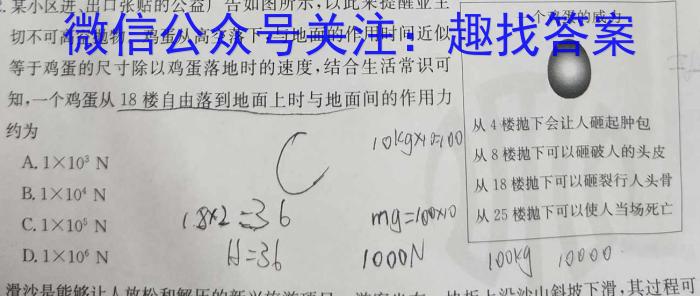 某小区进、出口张贴的公益广告如图所示,以此来提醒业主
切不可高空抛物。鸡蛋从高空落下,与地面的作用时间近似
等于鸡蛋的尺寸除以鸡蛋落地时的速度,结合生活常识可
知,一个鸡蛋从18楼自由落到地面上时与地面间的作用力
约为
A.1×10³ N
B.1×10⁴ N
C.1×10⁵ N
D.1×10⁶ N
微信公众号关注：趣找答案
一个鸡蛋的威力
从4楼抛下会让人砸起肿包
从8楼抛下可以砸破人的头皮
从18楼抛下可以砸裂行人头骨
从25楼抛下可以使人当场死亡
C
10kg×10=100
18×2=36
H=36
mg=100×10
1000N
100kg 10000
滑沙是能够让人放松和解压的新兴旅游项目,游客坐在一块板上沿沙山斜坡下滑,其过程可